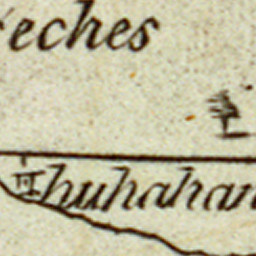 eches
huhahan